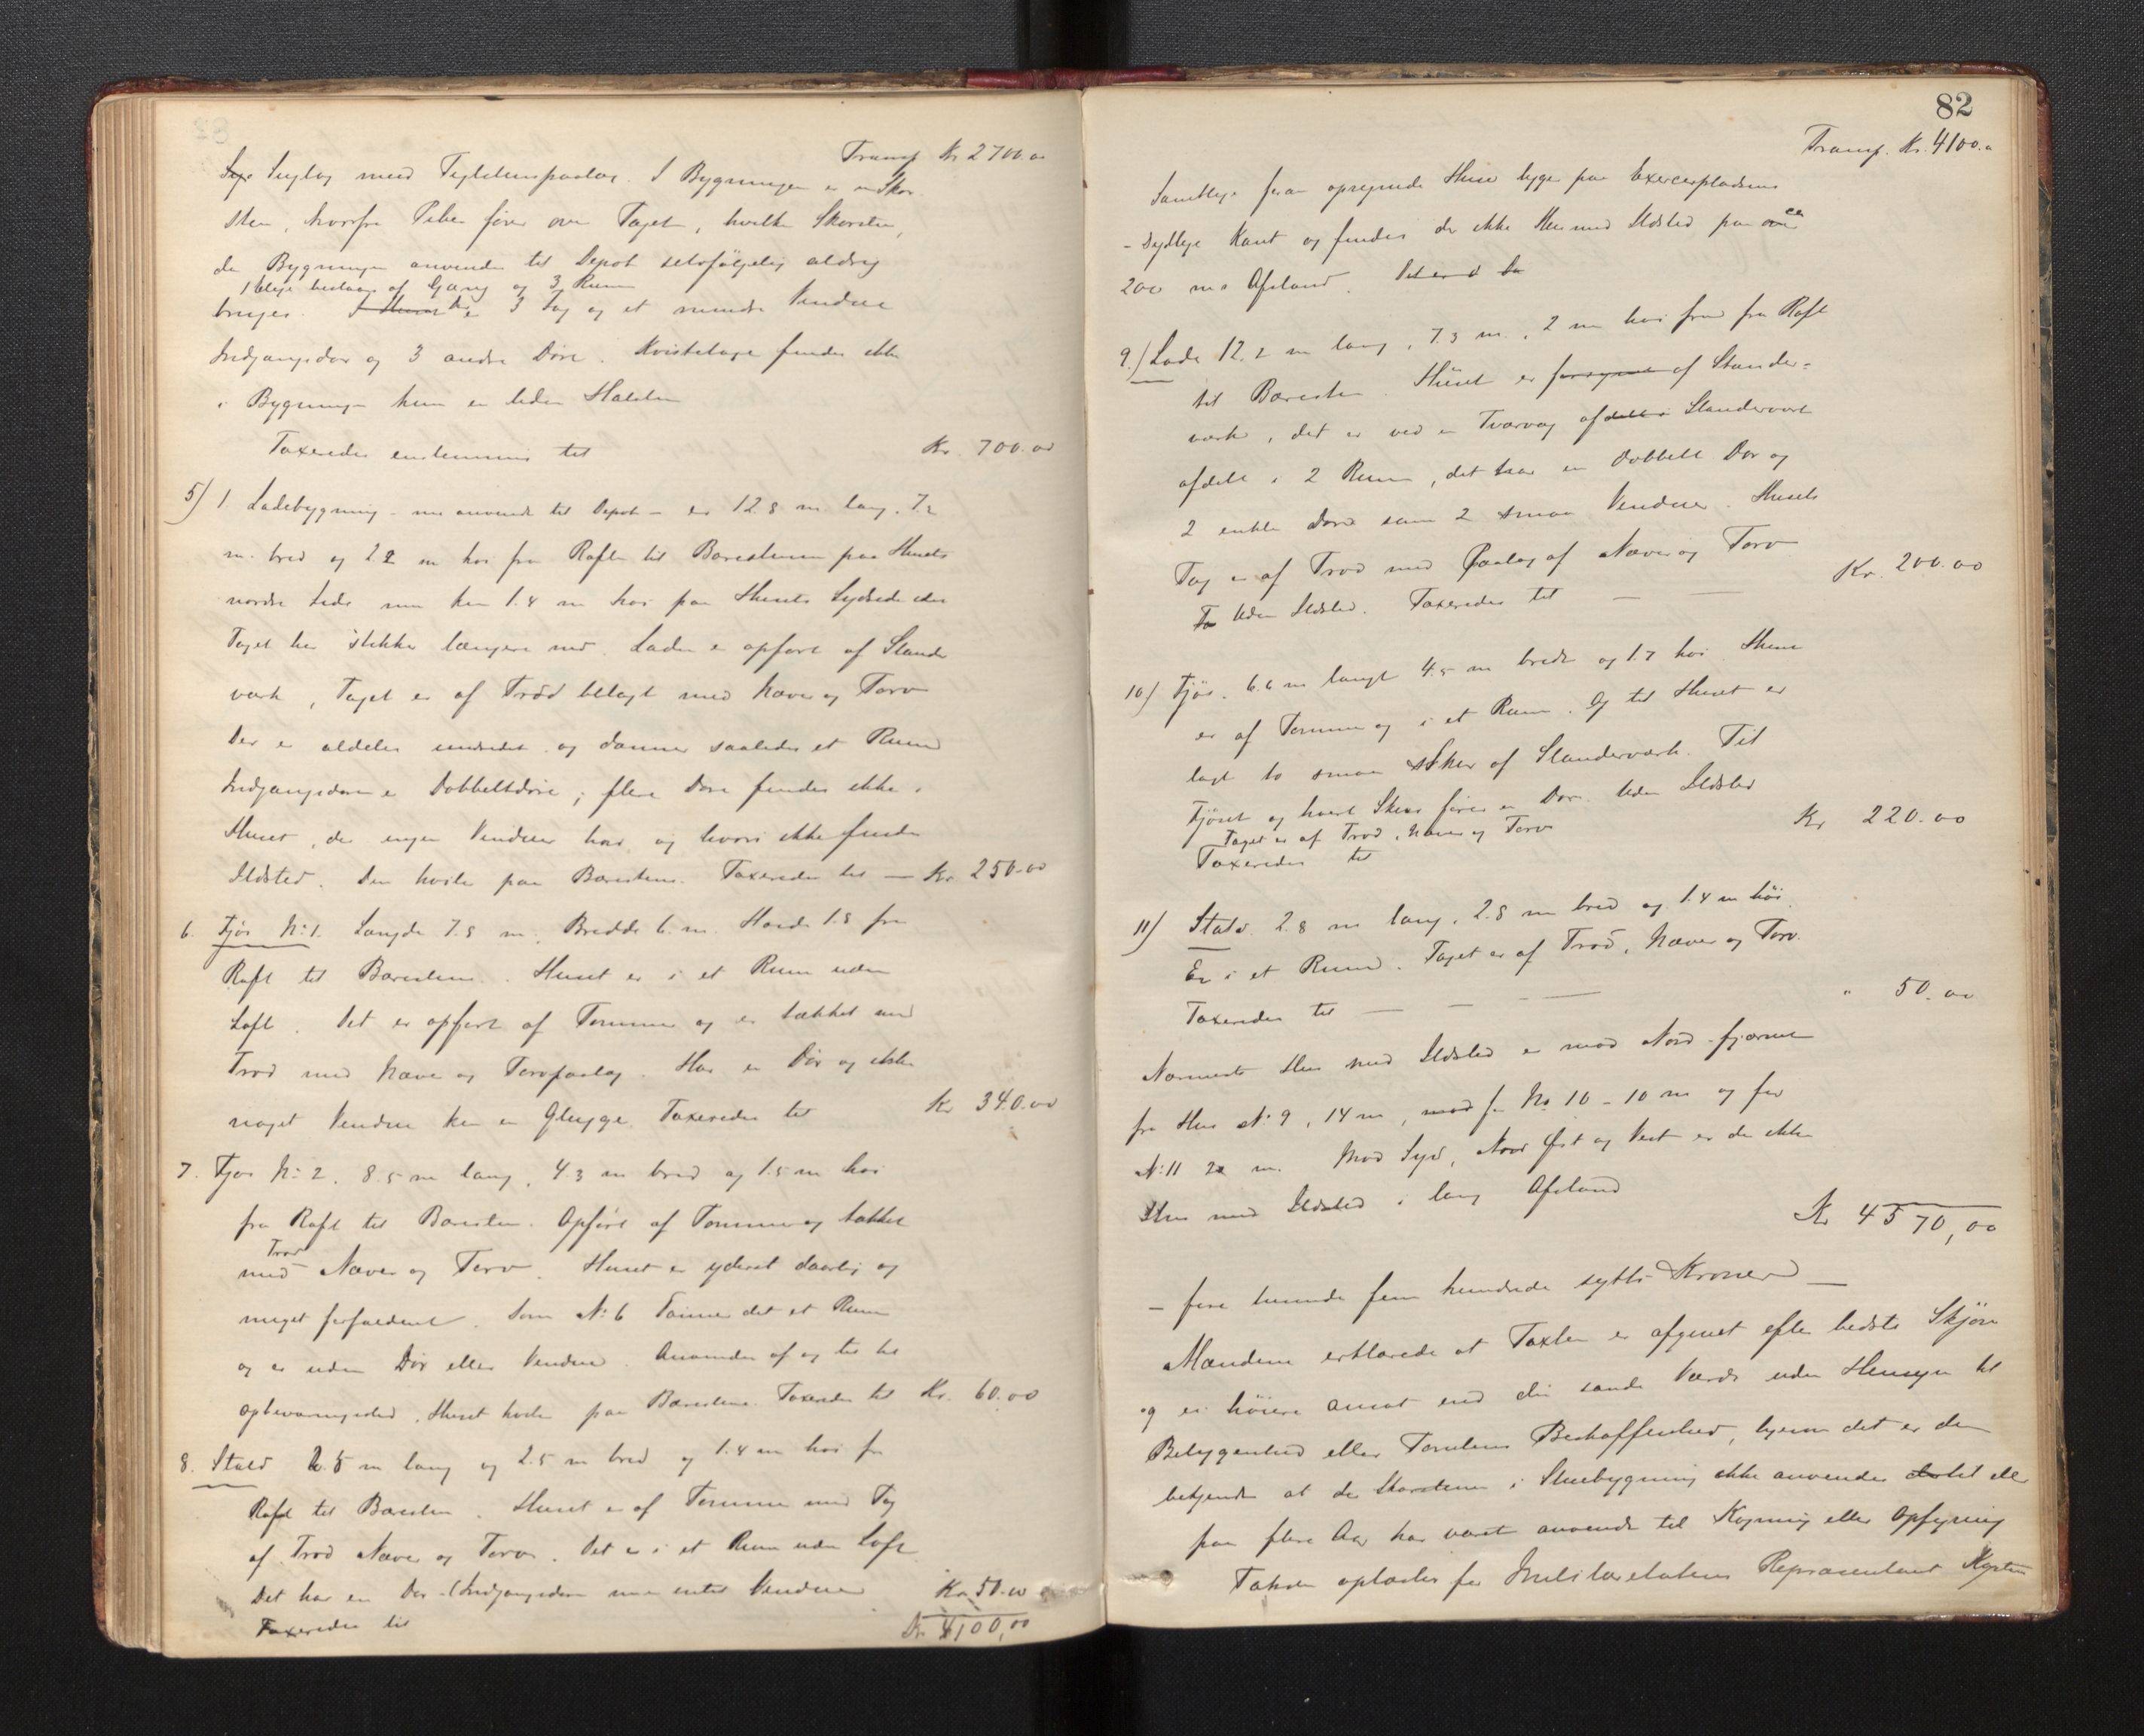 Transp Kr 2700.00
Sutag med Teglstenspaalæg. I Bygningen er en Skor
sten, hvorfra Piben fører over Taget, hvilken Skorsten,
da Bygningen anvendes til Depot selvfølgelig aldrig
bruges.
1 Etage bestaar af Gang og 3 Rum
3 Fag og et mindre Vindue
Indgangsdør og 3 andre Døre. Kvistetage findes ikke
i Bygningen kun en liden
Taxeredes enstemmig til Kr. 700.00
5) 1 Ladebygning - nu anvendt til Depot - er 12.8 m lang, 7.2
m. bred og 2.2 m høi fra Raften til Bærestenene paa Husets
nordre Side men kun 1.4 m høi paa Husets Sydside idet
Taget her stikker længere ned. Laden er opført af Stander
værk, Taget er af Trod belagt med Næver og Torv
Den er aldeles uindredet og danner saaledes et Rum
Indgangsdøren er Dobbeltdøre; flere Døre findes ikke i
Huset, der ingen Vinduer har, og hvori ikke findes
Ildsted. Den hviler paa Bærestene. Taxeredes til — Kr. 250.00
6. Fjøs No 1. Længde 7.8 m, Bredde 6 m. Høide 1.8 fra
Raft til Bærestene. Huset er i et Rum uden
Loft. Det er opført af Tømmer og er tækket med
Trod med Næver og Torvpaalæg. Har en Dør og ikke
noget Vindue kun en Glugge. Taxeredes til Kr 340.00
7. Fjøs No 2. 8.5 m lang, 4.3 m bred og 1.5 m høi
fra Raft til Bæresten. Opført af Tømmer og tækket
Trod
med Næver og Torv. Huset er yderst daarlig og
meget forfaldent. Som No 6 danner det et Rum
og er uden Dør eller Vindue. Anvendes af og til til
opbevaringssted. Huset hviler paa Bærestene. Taxeredes til Kr. 60.00
8. Stald 2.5 m lang og 2.5 m bred og 1.4 m høi fra
Raft til Bæresten. Huset er af Tømmer med Tag
af Trod Næver og Torv. Det er i et Rum uden Loft
Det har en Dør (Indgangsdøren men intet Vindue
Taxeredes til Kr. 50.00
Kr 4100,00
82
Transp. Kr. 4100.00
Samtlige foran opregnede Huse ligger paa Exercerpladsens
sydlige Kant og findes der ikke Hus med Ildsted paa ca
200 m's Afstand.
9.) Lade 12.2 m lang, 7.3 m., 2 m høi fra Raft
til Bæresten. Huset er forsynet af Stander-
værk, det er ved en Tværvæg af Standerværk
afdelt i 2 Rum, det har en dobbelt Dør og
2 enkle Døre samt 2 smaa Vinduer. Husets
Tag er af Trod med Paalæg af Næver og Torv
Uden Ildsted. Taxeredes til — — Kr. 200.00
10) Fjøs. 6.6 m langt 4.5 m bredt og 1.7 høi. Huset
er af Tømmer og i et Rum. Og til Huset er
lagt to smaa Skur af Standerværk. Til
Fjøset og hvert Skur fører en Dør. Uden Ildsted
Taget er af Trod, Næver og Torv
Taxeredes til Kr 220.00
11) Stald. 2.8 m lang, 2.8 m bred og 1.4 m høi.
Er i et Rum. Taget er af Trod, Næver og Torv.
Taxeredes til — — — " 50.00
Nærmeste Hus med Ildsted er mod Nord fjernet
fra Hus No 9, 14 m, mod fra No 10 - 10 m og fra
No 11 m. Mod Syd, Nord Øst og Vest er der ikke
Hus med Ildsted i lang Afstand
Kr 4570,00
— fire tusinde fem hundrede sytti Kroner —
Mændene erklærede at Taxten er afgivet efter bedste Skjøn
og ei høiere ansat end den sande Værdi uden Hensyn til
Beliggenhed eller Tomtens Beskaffenhed, ligesom det er dem
bekjendt at de Skorstene i Stuebygning ikke anvendes eller
paa flere Aar har været anvendt til Kogning eller Opfyring
Taksten oplæstes for Militæretatens Repræsentant